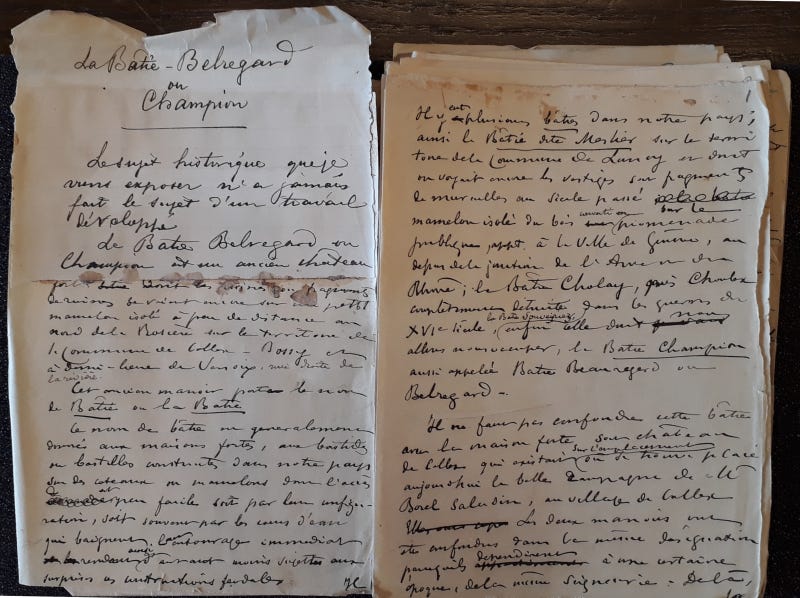 La Batie-Belregard
ou
Champion
Le sujet historique que je
viens exposer n'a jamais
fait le sujet d'un travail
développé
La Batie Belregard ou
Champion est un ancien château
fort dont les fragments
de ruines se voient encore sur un petit
mamelon isolé à peu de distance au
nord de la Bosière sur le territoire de
la Commune de Collex-Bossy et
à demi-heure de Versoix, rive droite de
la rivière.
Cet ancien manoir porte le nom
de Batie ou la Batie
Le nom de bâtie ou generalement
donné aux maisons fortes, aux bastides
ou bastilles construites dans notre pays
sur des coteaux ou mamelons dont l'accès
est peu facile soit par leur configu-
ration, soit souvent par les cours d'eau
qui baignent l'entourage immédiat
rendant ainsi moins sujettes aux
surprises
Il y eut plusieurs bâties dans notre pays,
ainsi la Bâtie dite Meslier sur le terri
toire de la Commune de Lancy et dont
on voyait encore les vestiges
de murailles au siecle passé sur le
mamelon isolé du bois promenade
publique, appt. à la Ville de Genève, au
dessus de la jonction de l'Arve et du
Rhône; la Batie Cholay, près Choulex
complètement détruite dans les guerres du
XVIe siecle, enfin celle dont nous
allons nous occuper, la Batie Champion
aussi appelée Batie Beauregard ou
Belregard -.
Il ne faut pas confondre cette bâtie
avec la maison forte son château
de Collex qui existait sur l'emplacement où se trouve placé
aujourd'hui la belle Campagne de Mr
Borel Saladin, au village de Collex
Les deux manoirs ont
été confondus dans la même désignation
parcequ'ils dependirent à une certaine
époque, de la même Seigneurie. De là,